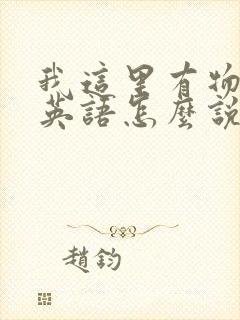 我這里有物
英語怎麼說
趙鈞